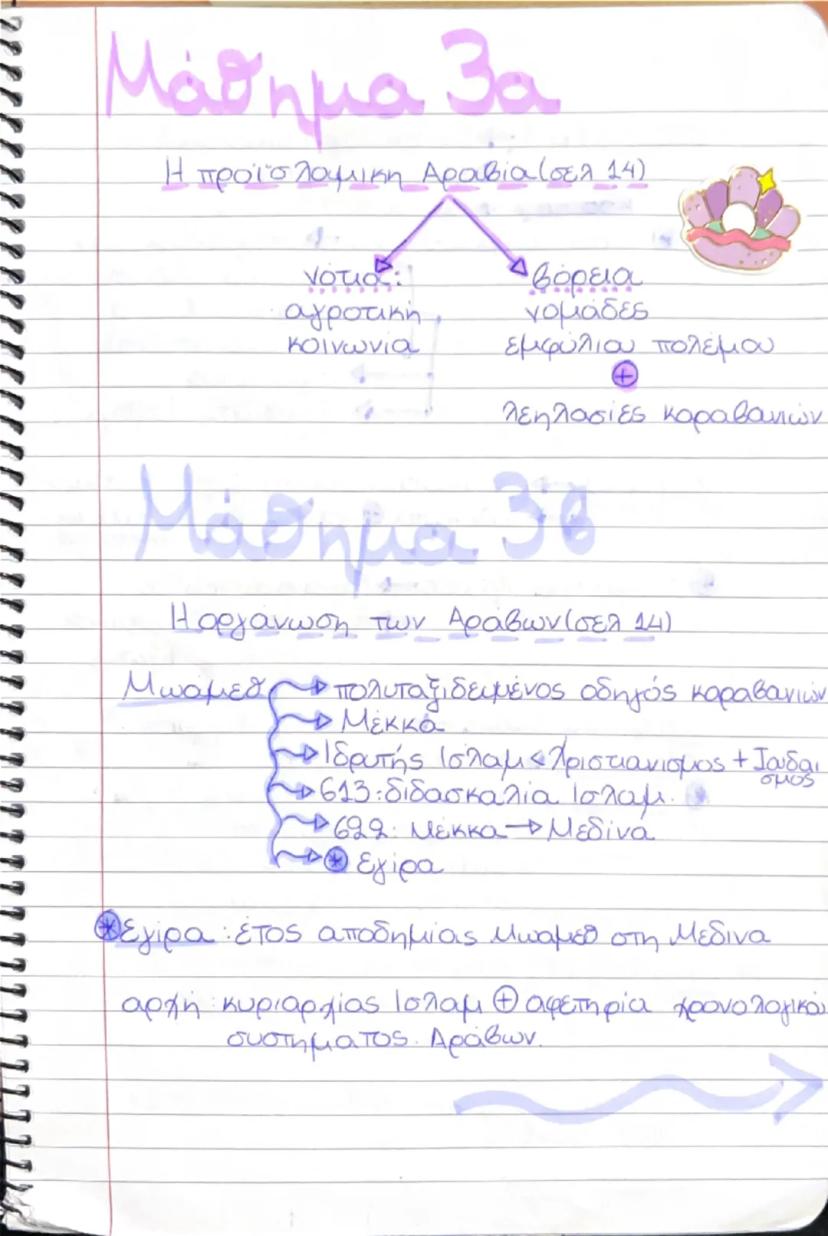 Μάθημα 3α
Η προϊσλαμική Αραβία (σελ 14)
νότια: βόρεια
αγροτική νομάδες
κοινωνία εμφύλιου πολέμου
+
λεηλασίες καραβανιών
Μάθημα 3β
Η οργάνωση των Αράβων (σελ 14)
Μωάμεθ → πολυταξιδευμένος οδηγός καραβανιών
→ Μέκκα
→ Ιδρυτής Ισλαμ < Χριστιανισμος + Ιουδαι
σμος
→ 613: διδασκαλία Ισλαμ.
→ 622: Μέκκα → Μεδίνα
→ * Εγίρα
* Εγίρα: έτος αποδημίας Μωαμεθ στη Μεδίνα
αρχή κυριαρχίας Ισλαμ + αφετηρία χρονολογικού
συστηματος Αράβων.